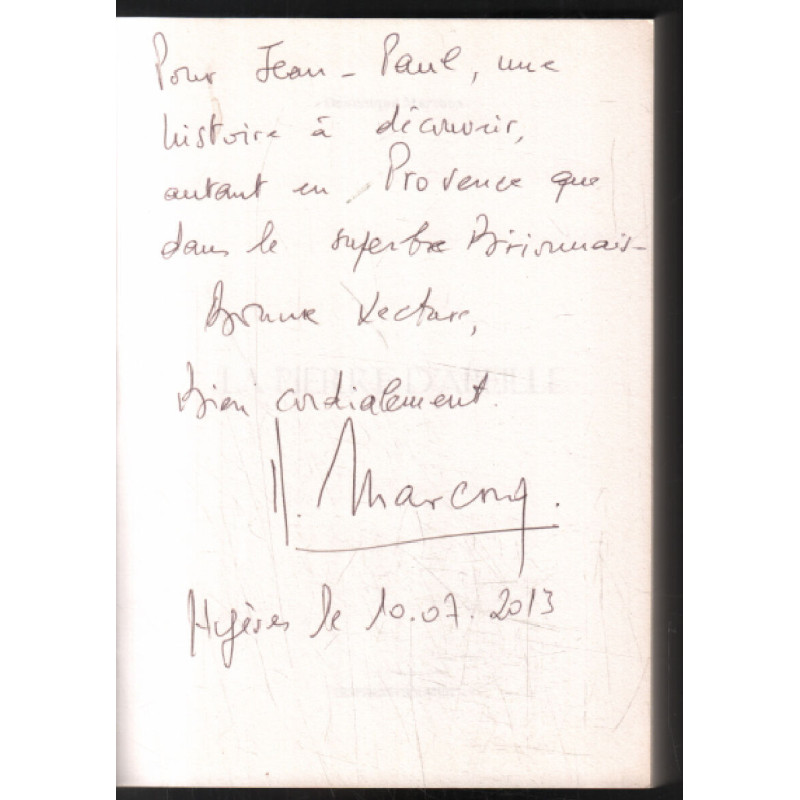 Pour Jean-Paul, une
histoire à découvrir,
autant en Provence que
dans le superbe Brionnais-
Bonne Lecture,
Bien cordialement.
Marcouq.
Hyères le 10.07.2013